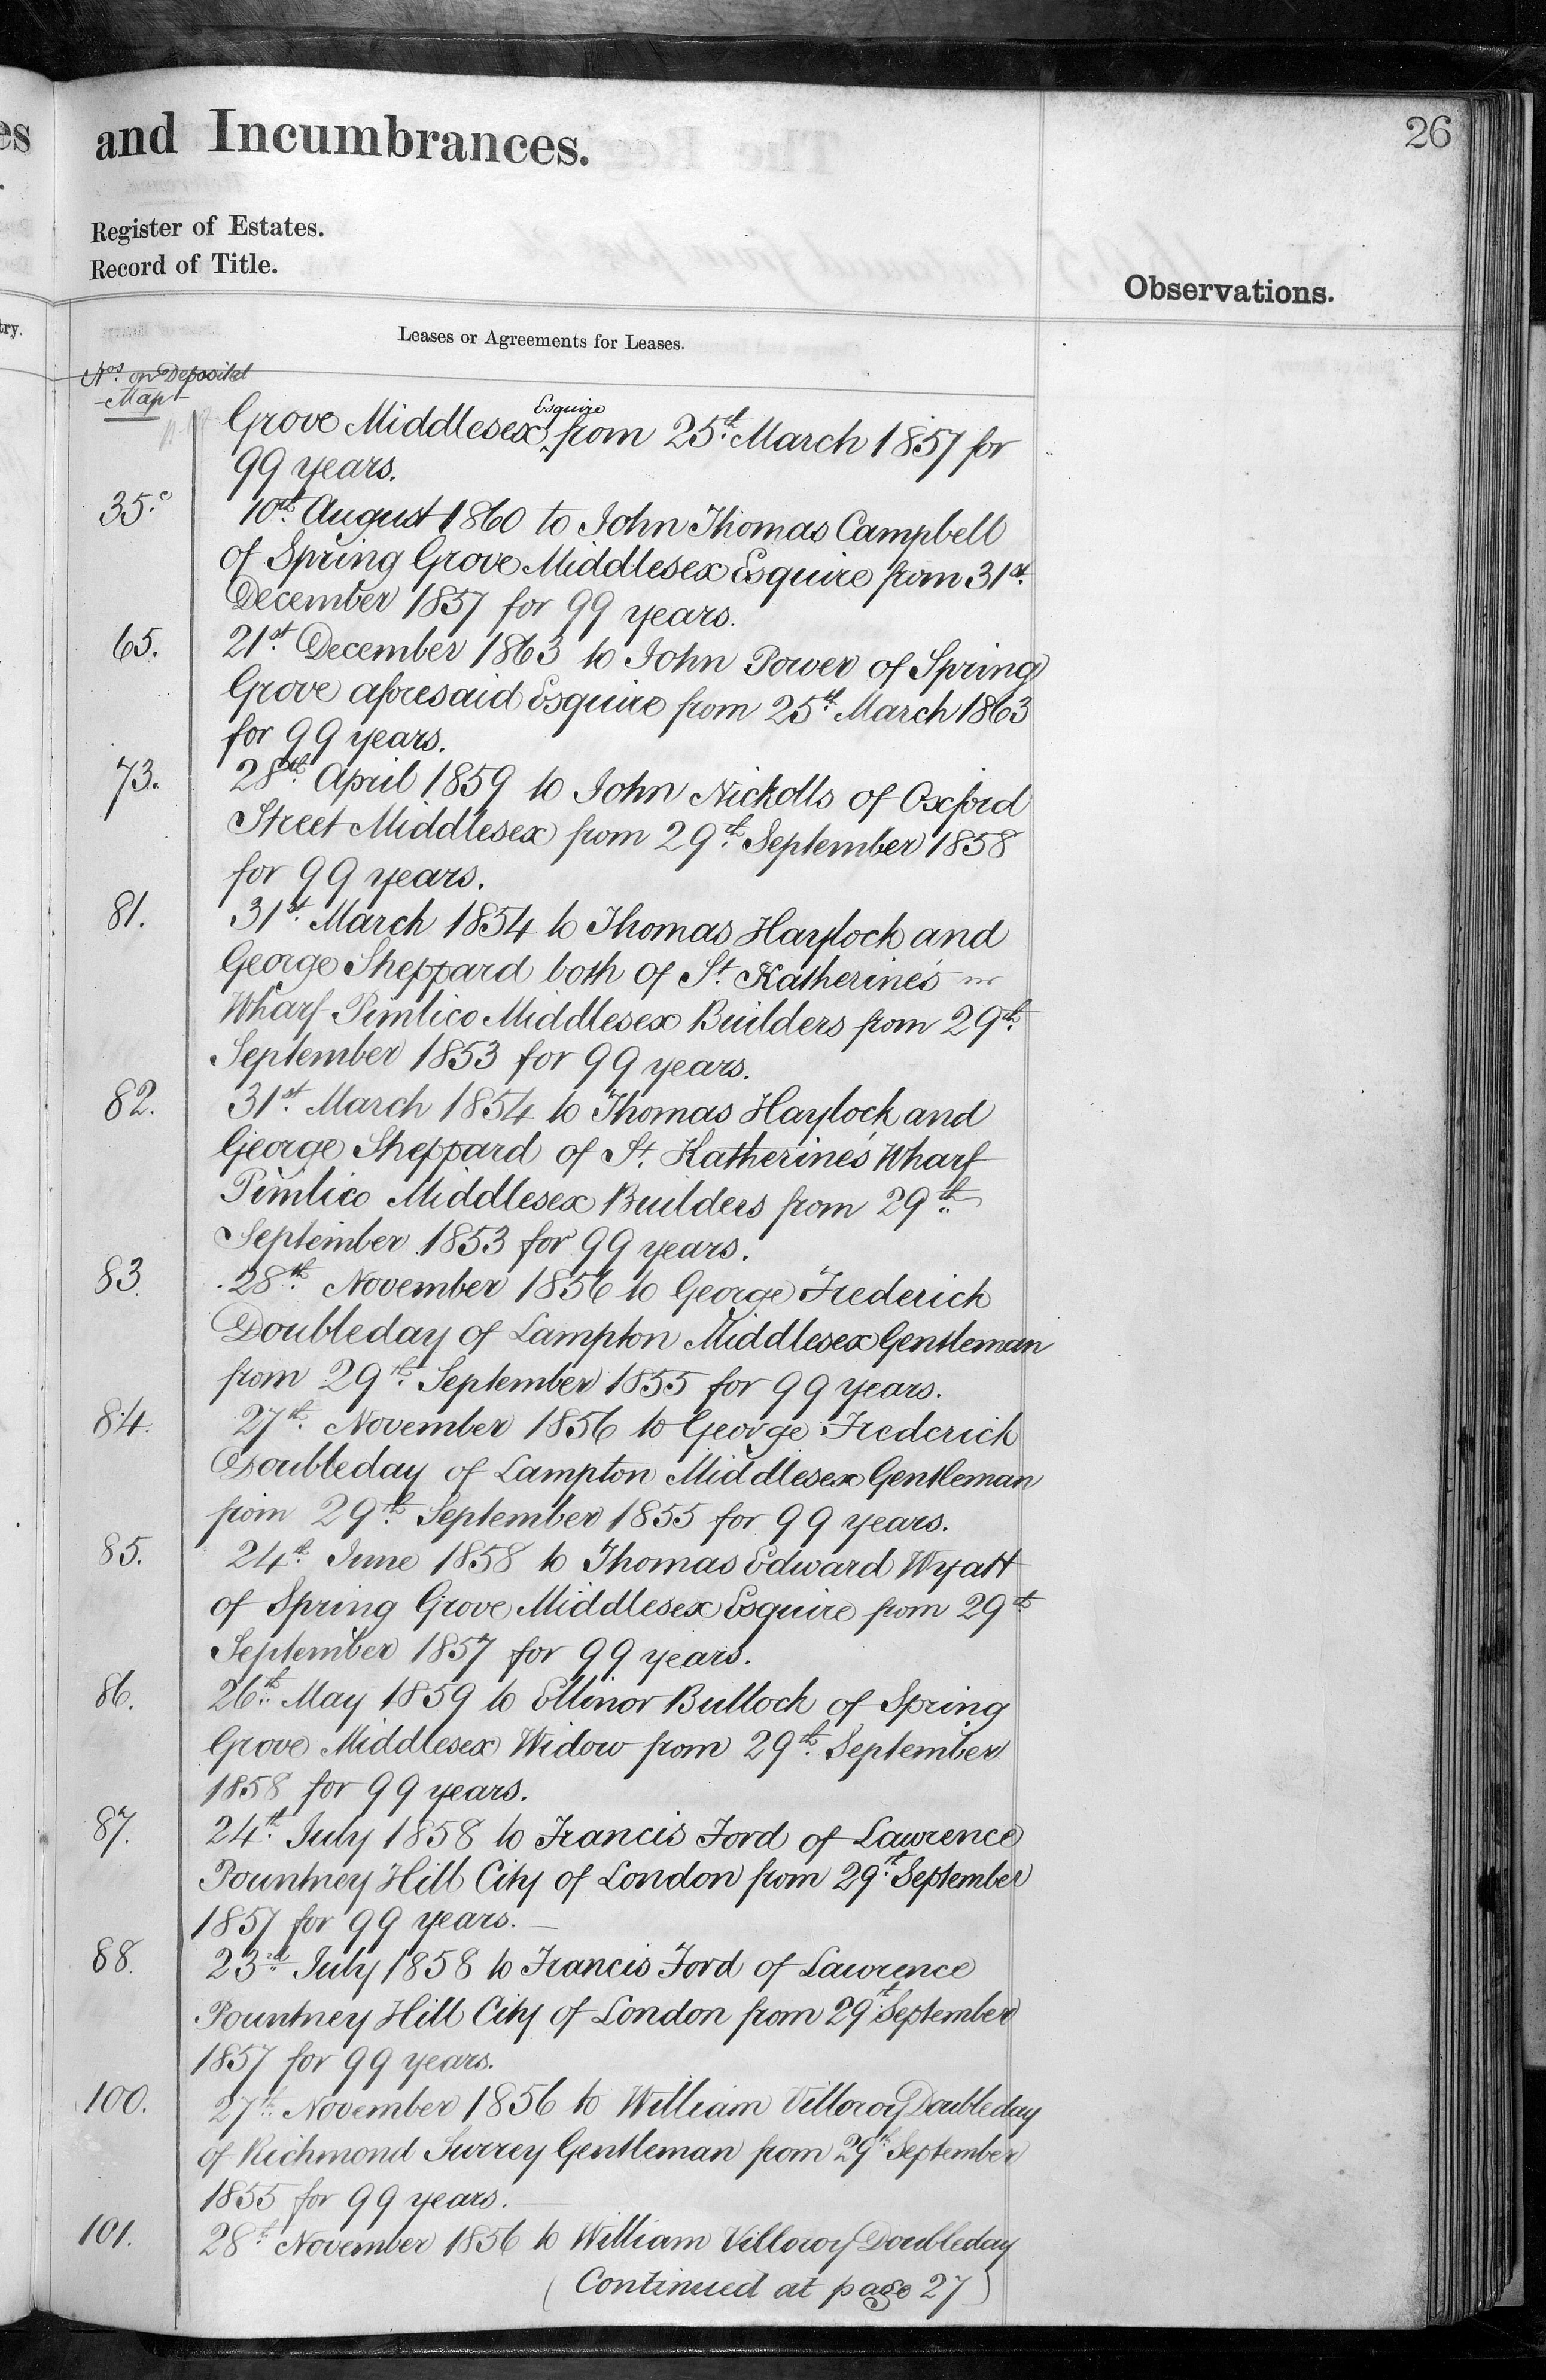 26
and Incumbrances.
Register of Estates.
Record of Title.
Observations.
Leases or Agreements for Leases.
Nos. on Deposited
Map
Grove Middlesex Esquire from 25th. March 1857 for
99 years.
35.c 10th. August 1860 to John Thomas Campbell
of Spring Grove Middlesex Esquire from 31st.
December 1857 for 99 years.
65. 21st. December 1863 to John Power of Spring
Grove aforesaid Esquire from 25th. March 1863
for 99 years.
73. 28th. April 1859 to John Nickolls of Oxford
Street Middlesex from 29th. September 1858
for 99 years.
81. 31st. March 1854 to Thomas Haylock and
George Sheppard both of St. Katherine's
Wharf Pimlico Middlesex Builders from 29th.
September 1853 for 99 years.
82. 31st. March 1854 to Thomas Haylock and
George Sheppard of St. Katherine's Wharf
Pimlico Middlesex Builders from 29th.
September 1853 for 99 years.
83. 28th. November 1856 to George Frederick
Doubleday of Lampton Middlesex Gentleman
from 29th. September 1855 for 99 years.
84. 27th. November 1856 to George Frederick
Doubleday of Lampton Middlesex Gentleman
from 29th. September 1855 for 99 years.
85. 24th. June 1858 to Thomas Edward Wyatt
of Spring Grove Middlesex Esquire from 29th.
September 1857 for 99 years.
86. 26th. May 1859 to Ellinor Bullock of Spring
Grove Middlesex Widow from 29th. September
1858 for 99 years.
87. 24th. July 1858 to Francis Ford of Lawrence
Pountney Hill City of London from 29th. September
1857 for 99 years.
88. 23rd. July 1858 to Francis Ford of Lawrence
Pountney Hill City of London from 29th. September
1857 for 99 years.
100. 27th. November 1856 to William Villoroy Doubleday
of Richmond Surrey Gentleman from 29th. September
1855 for 99 years.
101. 28th. November 1856 to William Villoroy Doubleday
(Continued at page 27)